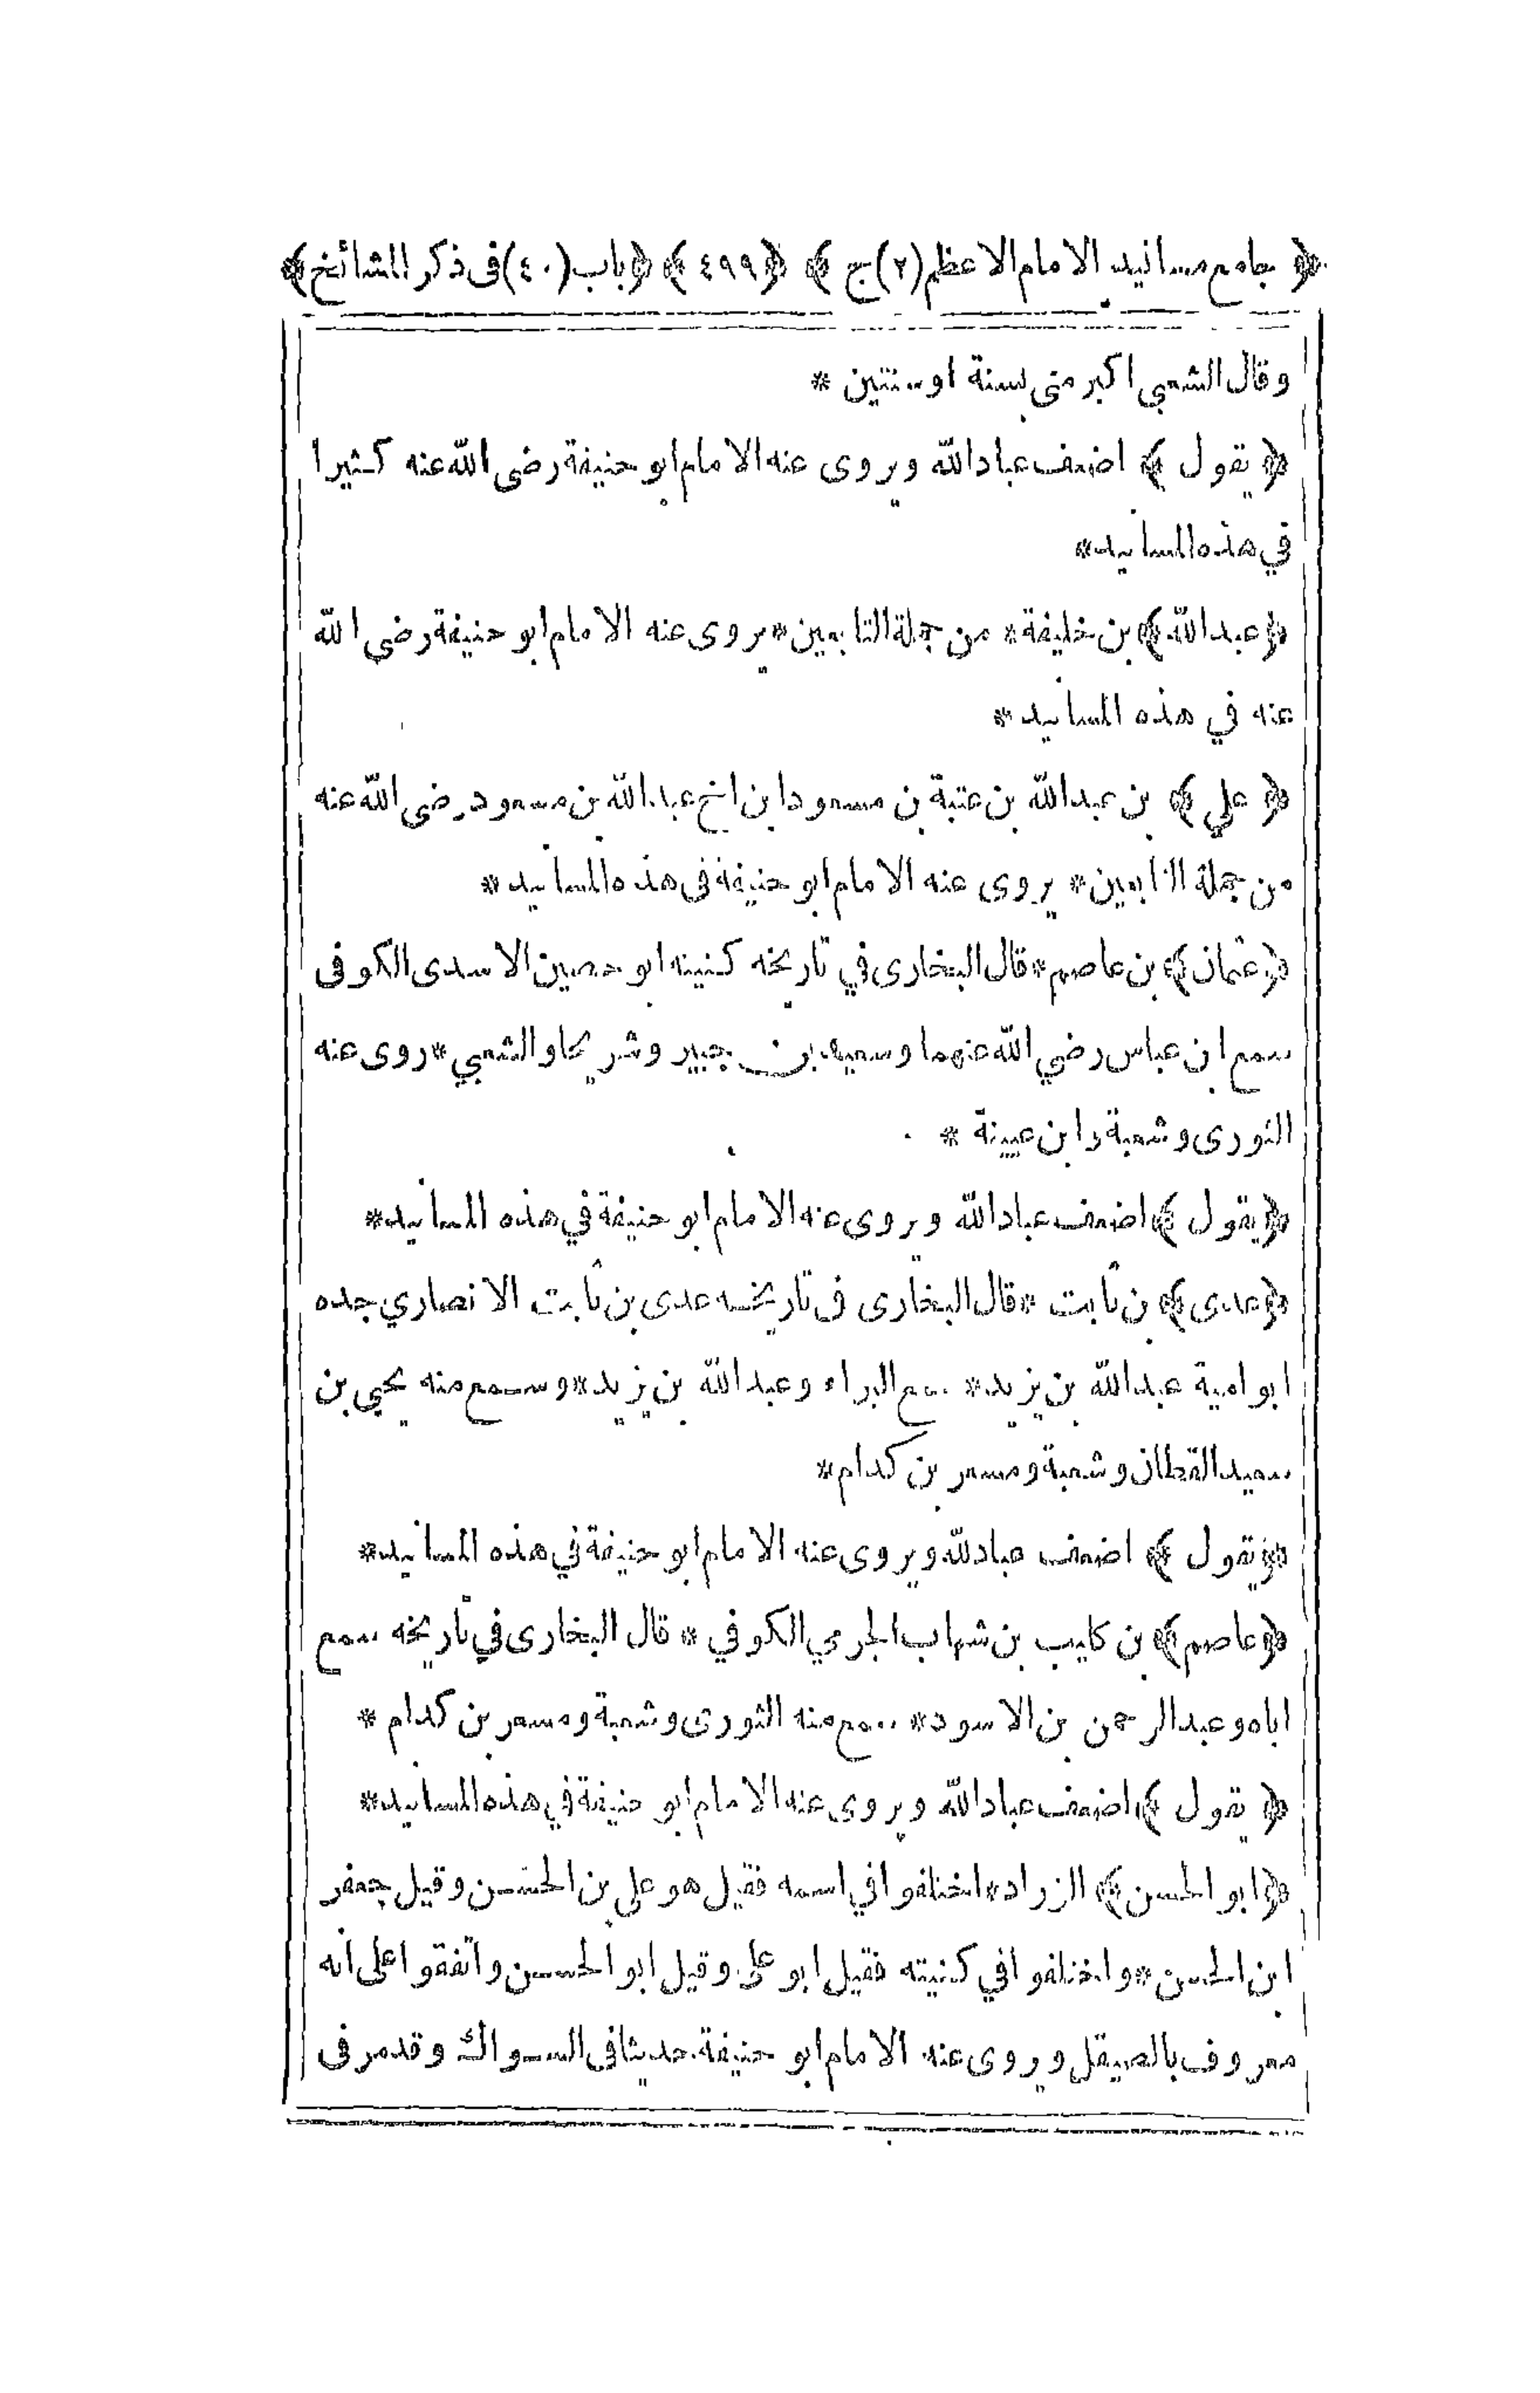 ﴿ جامع مسانيد الامام الاعظم (٢) ج ﴾ ﴿ ٤٩٩ ﴾ ﴿ باب (٤٠) فى ذكر المشائخ ﴾
وقال الشعبي اكبر منى بسنة اوسنتين *
﴿ يقول ﴾ اضعف عباد الله ويروى عنه الامام ابو حنيفة رضى الله عنه كثيرا
في هذه المسانيد *
﴿ عبد الله ﴾ بن خليفة * من جملة التابعين * يروى عنه الامام ابو حنيفة رضى الله
عنه في هذه المسانيد *
﴿ علي ﴾ بن عبد الله بن عتبة بن مسعود ابن اخ عبد الله بن مسعود رضى الله عنه
من جملة التابعين * يروى عنه الامام ابو حنيفة فى هذه المسانيد *
﴿ عثمان ﴾ بن عاصم * قال البخارى في تاريخه كنيته ابو حصين الاسدى الكوفى
سمع ابن عباس رضي الله عنهما وسعيد بن جبير وشريحا والشعبي * روى عنه
الثورى وشعبة وابن عيينة *
﴿ يقول ﴾ اضعف عباد الله ويروى عنه الامام ابو حنيفة في هذه المسانيد *
﴿ عدى ﴾ بن ثابت * قال البخارى فى تاريخه عدى بن ثابت الانصاري جده
ابو امية عبد الله بن يزيد * سمع البراء وعبد الله بن يزيد * وسمع منه يحيى بن
سعيد القطان وشعبة ومسعر بن كدام *
﴿ يقول ﴾ اضعف عباد لله ويروى عنه الامام ابو حنيفة في هذه المسانيد *
﴿ عاصم ﴾ بن كليب بن شهاب الجرمي الكوفي * قال البخارى في تاريخه سمع
اباه وعبد الرحمن بن الاسود * سمع منه الثورى وشعبة ومسعر بن كدام *
﴿ يقول ﴾ اضعف عباد الله ويروى عنه الامام ابو حنيفة في هذه المسانيد *
﴿ ابو الحسن ﴾ الزراد * اختلفوا في اسمه فقيل هو علي بن الحسن وقيل جعفر
ابن الحسن * واختلفوا في كنيته فقيل ابو على وقيل ابو الحسن واتفقوا على انه
معروف بالصيقل ويروى عنه الامام ابو حنيفة حديثا فى السواك وقد مر فى